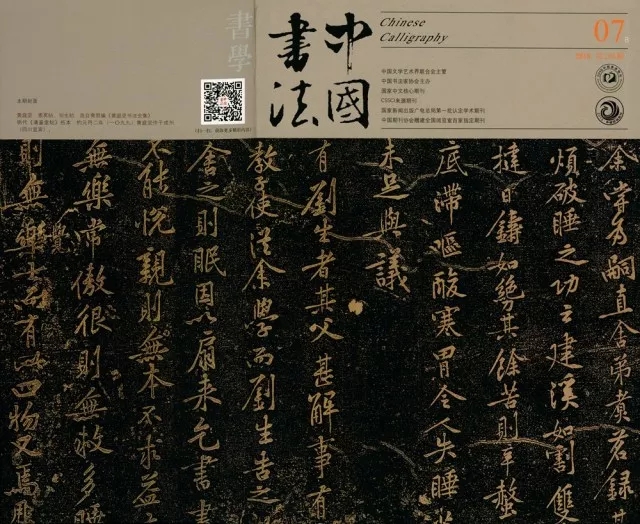 中國書法
Chinese
Calligraphy
07
書學
中国文学艺术界联合会主管
中国书法家协会主办
国家中文核心期刊
CSSCI来源期刊
国家新闻出版广电总局第一批认定学术期刊
余嘗為嗣直含弟煮茗録其
煩破睡之功云建溪如割雙
撻日鑄如其餘苦則辛螫
底滯嘔酸寒胃令人失睡
未足與議
有劉生者其父甚解事有
教子使從余學而劉生告之
舍之則眠因以扇来乞書
不能悦親則無本不求益
無樂常傲很則無救多睡
則無有此四物又焉